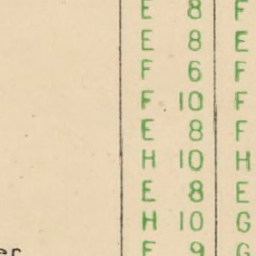 E 8 F
E 8 E
F 6 F
F 10 F
E 8 F
H 10 H
E 8 E
H 10 G
er F 9 G